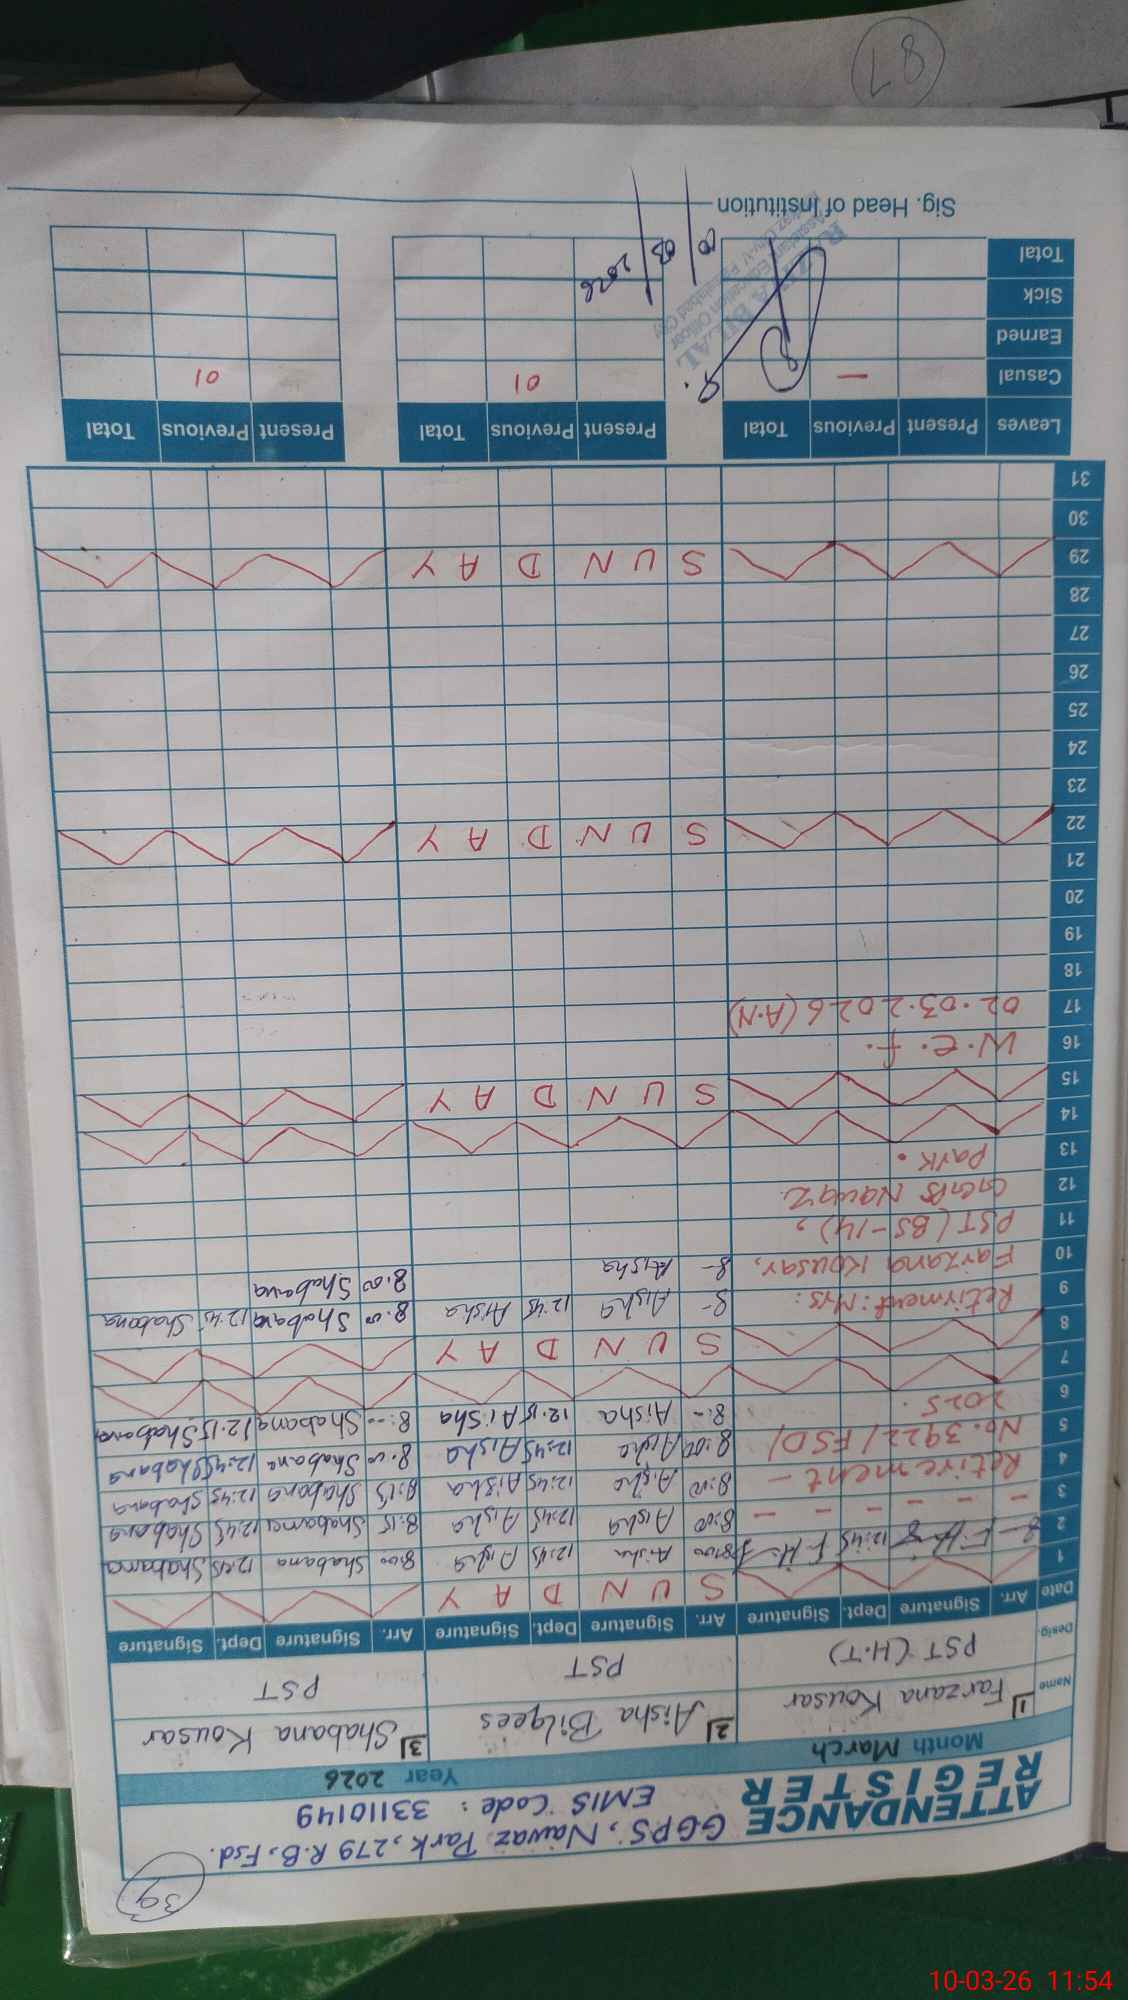 39
ATTENDANCE REGISTER
GGPS, Nawaz Park, 279 R.B, Fsd.
EMIS Code : 33110149
Month March Year 2026
Name 1) Farzana Kousar 2) Aisha Bilqees 3) Shabana Kousar
Desig. PST (H.T) PST PST
Date Arr. Signature Dept. Signature Arr. Signature Dept. Signature Arr. Signature Dept. Signature
1 S U N D A Y
2 8- 12:45 8:00 Aisha 12:45 Aisha 8:00 Shabana 12:45 Shabana
3 - - - - - - 8:00 Aisha 12:45 Aisha 8:15 Shabana 12:45 Shabana
4 Retirement - 8:00 Aisha 12:45 Aisha 8:15 Shabana 12:45 Shabana
5 No. 3922/FSD/ 8:00 Aisha 12:45 Aisha 8:00 Shabana 12:45 Shabana
6 2025. 8:- Aisha 12:15 Aisha 8:- Shabana 12:15 Shabana
7
8 S U N D A Y
9 Retirment: Mrs: 8- Aisha 12:45 Aisha 8:00 Shabana 12:45 Shabana
10 Farzana Kousar, 8- Aisha 8:00 Shabana
11 PST (BS-14),
12 GGPS Nawaz
13 Park.
14
15 S U N D A Y
16 W.e.f.
17 02.03.2026 (A.N)
18
19
20
21
22 S U N D A Y
23
24
25
26
27
28
29 S U N D A Y
30
31
Leaves Present Previous Total Present Previous Total Present Previous Total
Casual — 01 01
Earned
Sick
Total
BILAL
Assistant Education Officer
10/03/2026
Sig. Head of Institution
87
10-03-26 11:54